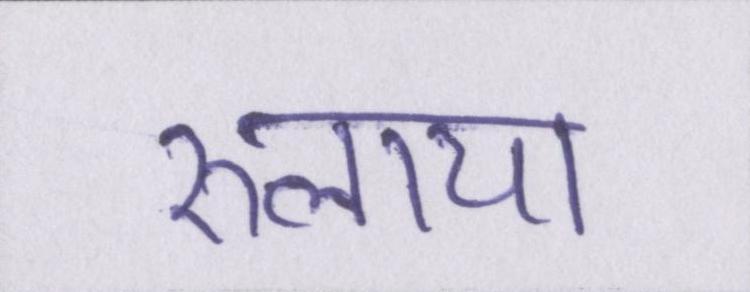 रुलाया